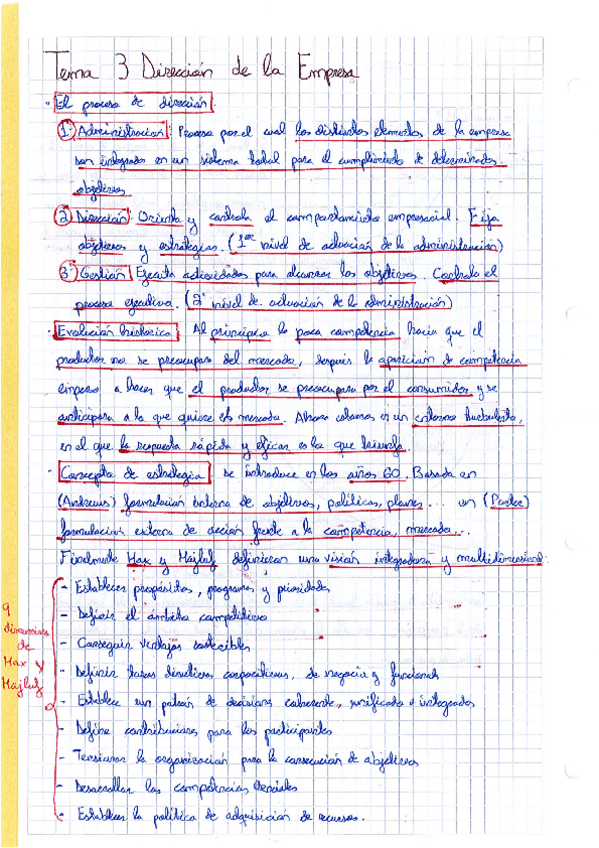 Tema 3 Dirección de la Empresa
· El proceso de dirección
1º Administración: Proceso por el cual los distintos elementos de la empresa
son integrados en un sistema total para el cumplimiento de determinados
objetivos
2º Dirección: Orienta y controla el comportamiento empresarial. Fija
objetivos y estrategias. (1er nivel de actuación de la administración)
3º Gestión: Ejecuta actividades para alcanzar los objetivos. Controla el
proceso ejecutivo. (2º nivel de actuación de la administración)
· Evolución histórica: Al principio la poca competencia hacía que el
productor no se preocupara del mercado, después la aparición de competencia
empezo a hacer que el productor se preocupara por el consumidor y se
anticipara a lo que quiere el mercado. Ahora estamos en un entorno turbulento,
en el que la respuesta rápida y eficaz es la que triunfa.
· Concepto de estrategia: se introduce en los años 60. Basada en
(Andrews) formulación interna de objetivos, políticas, planes... un (Porter)
formulación externa de acción frente a la competencia, mercado...
Finalmente Hax y Majluf definieron una visión integradora y multidimensional:
- Establecer propósitos, programas y prioridades
- Definir el ámbito competitivo
- Conseguir ventajas sostenibles
9 dimensiones de Hax y Majluf
- Definir tareas directivas corporativas, de negocio y funcional
- Establece un patrón de decisiones coherente, unificado e integrados
- Define contribuciones para los participantes
- Tensionar la organización para la consecución de objetivos
- Desarrollar las competencias
- Establecer la política de adquisición de recursos.